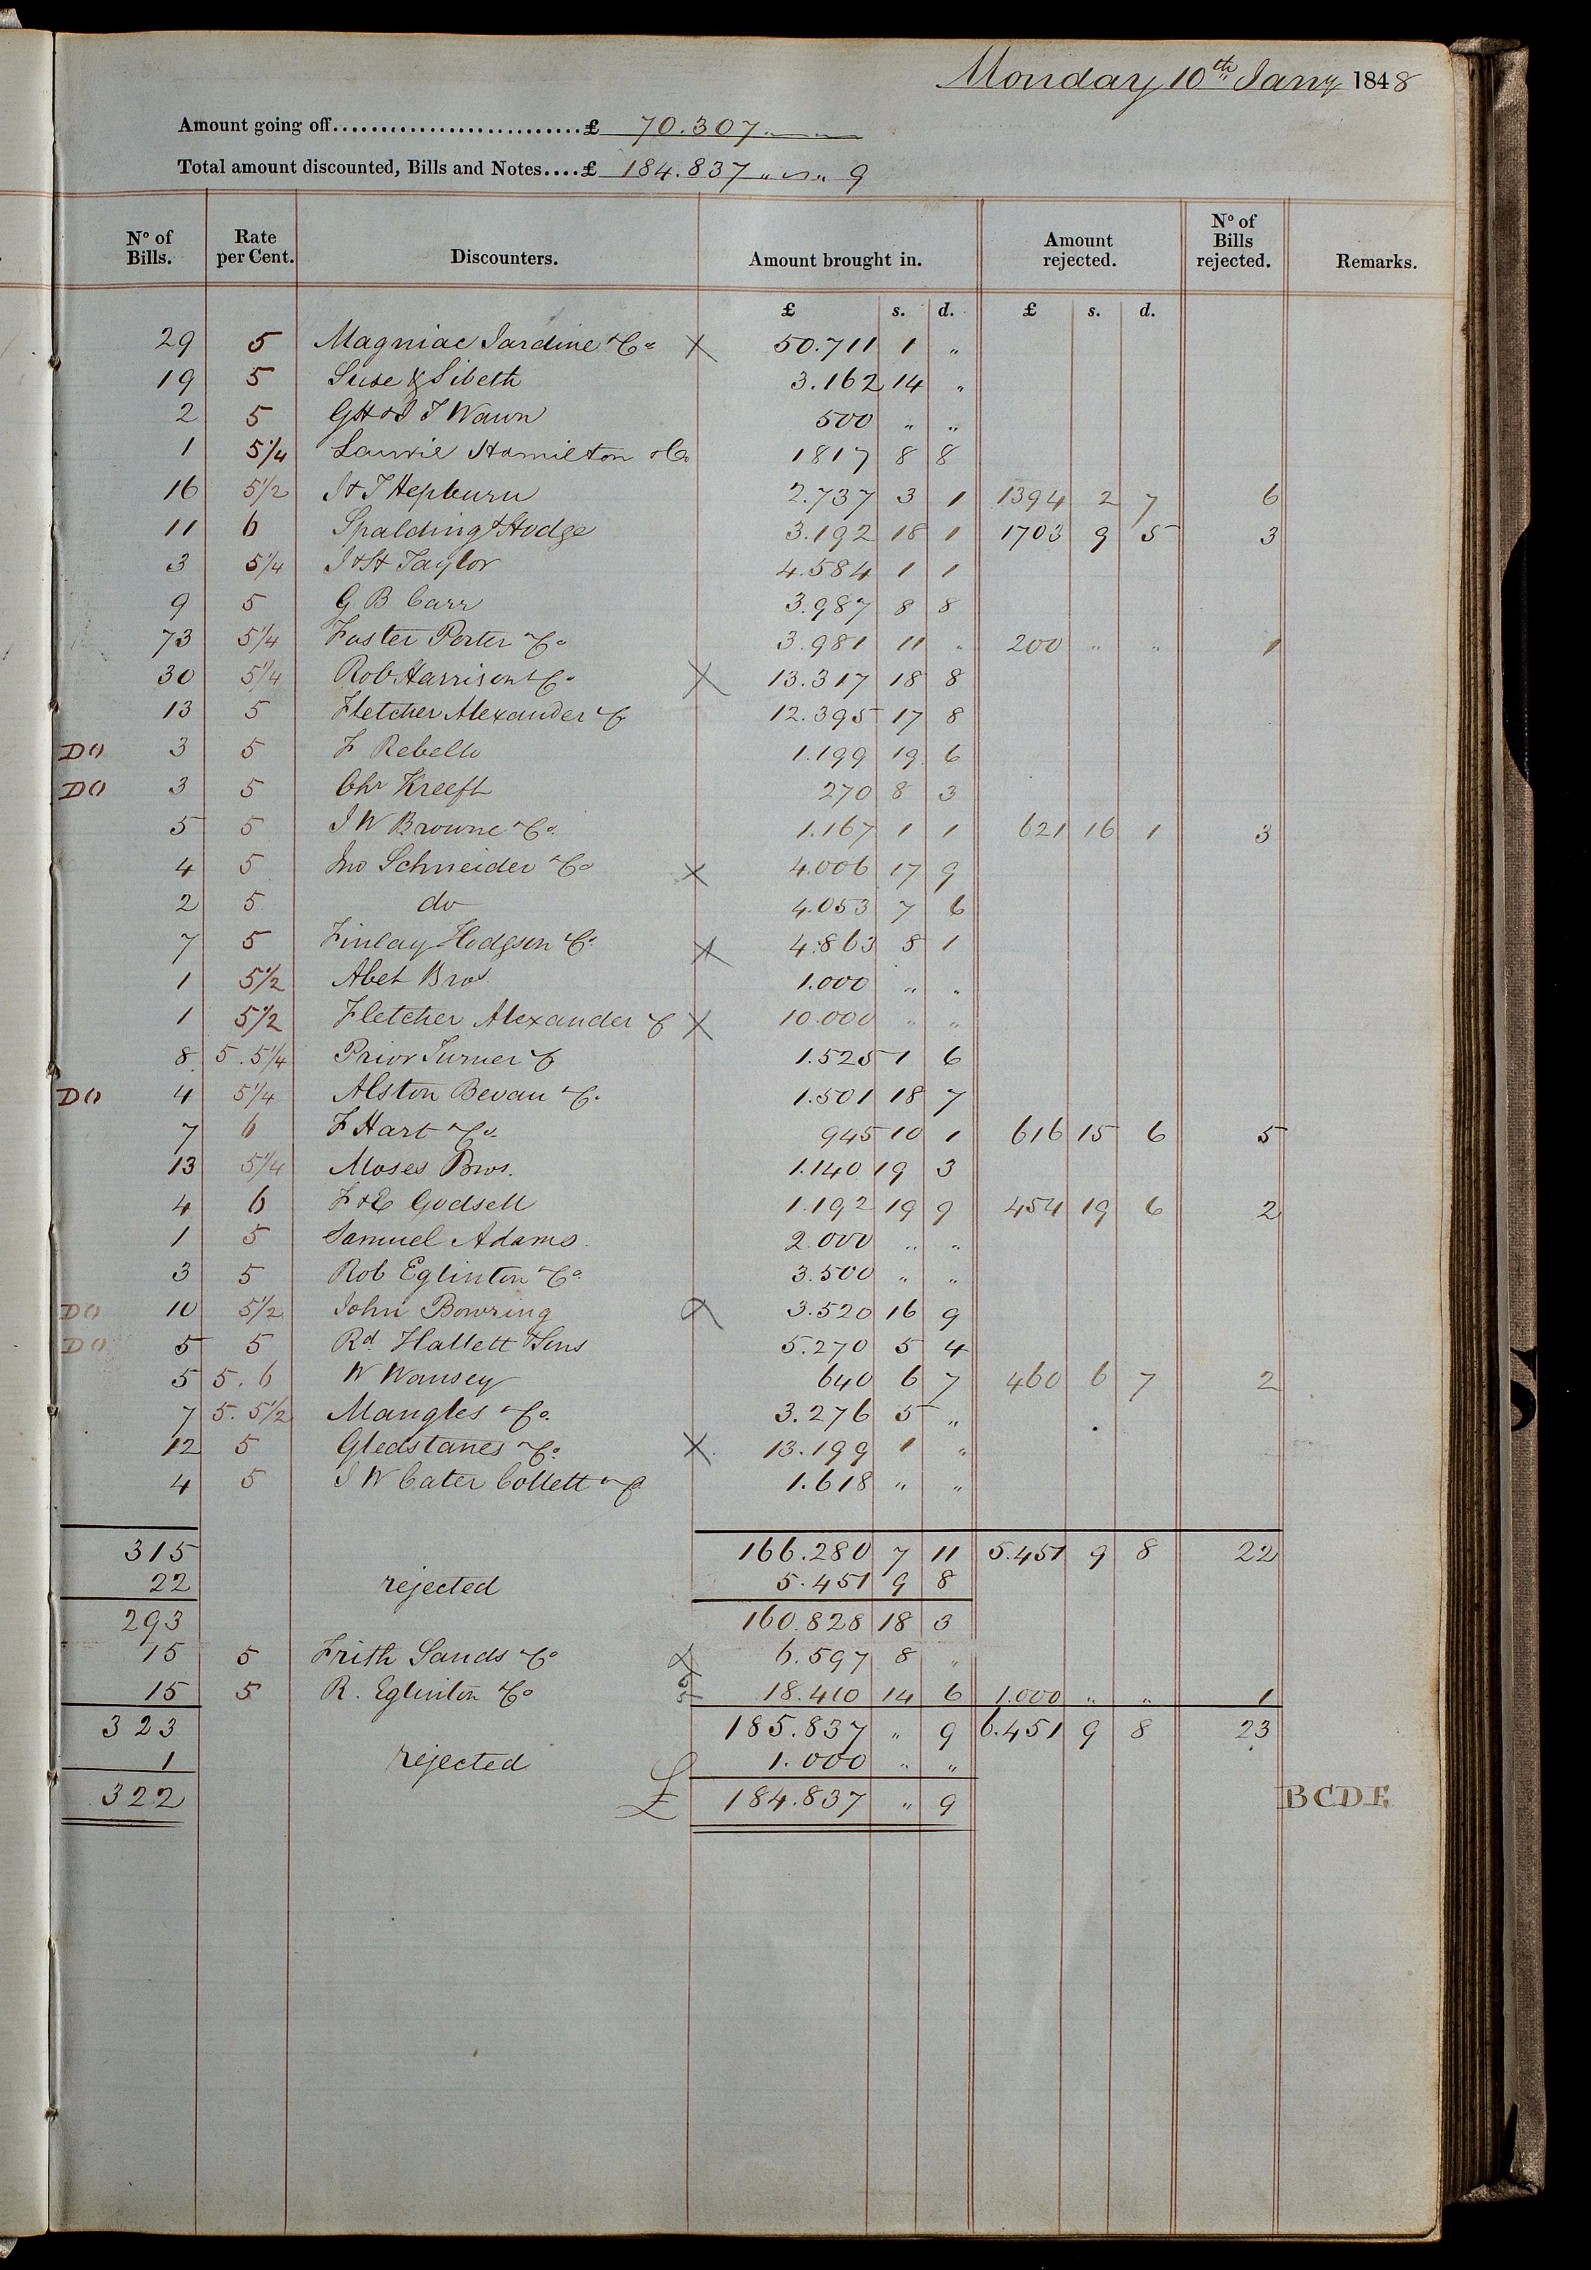 Monday 10th Jany 1848
Amount going off...........................£ 70.307 „ —
Total amount discounted, Bills and Notes....£ 184.837 „ „ 9
No of Bills. Rate per Cent. Discounters. Amount brought in. Amount rejected. No of Bills rejected. Remarks.
£ s. d. £ s. d.
29 5 Magniac Jardine & Co X 50.711 1 „
19 5 Suse & Sibeth 3.162 14 „
2 5 GH & J T Wawn 500 „ „
1 5 1/4 Laurie Hamilton & Co 1817 8 8
16 5 1/2 J & T Hepburn 2.737 3 1 1394 2 7 6
11 6 Spalding & Hodge 3.192 18 1 1703 9 5 3
3 5 1/4 J & H Taylor 4.584 1 1
9 5 G B Carr 3.987 8 8
73 5 1/4 Foster Porter & Co 3.981 11 „ 200 „ „ 1
30 5 1/4 Rob Harrison & Co X 13.317 18 8
13 5 Fletcher Alexander & C 12.395 17 8
DO 3 5 F Rebello 1.199 19 6
DO 3 5 Chr Kreeft 270 8 3
5 5 J W Browne & Co. 1.167 1 1 621 16 1 3
4 5 Jno Schneider & Co X 4.006 17 9
2 5 do 4.053 7 6
7 5 Finlay Hodgson & Co X 4.863 8 1
1 5 1/2 Abet Bros 1.000 „ „
1 5 1/2 Fletcher Alexander & C X 10.000 „ „
8 5. 5 1/4 Prior Turner & C 1.525 1 6
DO 4 5 1/4 Alston Bevan & C. 1.501 18 7
7 6 F Hart & Co. 945 10 1 616 15 6 5
13 5 1/4 Moses Bros. 1.140 19 3
4 6 F & E Godsell 1.192 19 9 454 19 6 2
1 5 Samuel Adams. 2.000 „ „
3 5 Rob Eglinton & Co. 3.500 „ „
DO 10 5 1/2 John Bowring X 3.520 16 9
DO 5 5 Rd Hallett & Sons 5.270 5 4
5 5. 6 W Wansey 640 6 7 460 6 7 2
7 5. 5 1/2 Mangles & Co. 3.276 5 „
12 5 Gledstanes & Co. X 13.199 1 „
4 5 J W Cater Collett & C 1.618 „ „
315 166.280 7 11 5.451 9 8 22
22 rejected 5.451 9 8
293 160.828 18 3
15 5 Frith Sands & Co X 6.597 8 „
15 5 R. Eglinton & Co 18.410 14 6 1.000 „ „ 1
323 185.837 „ 9 6.451 9 8 23
1 rejected 1.000 „ „
322 £ 184.837 „ 9 BCDE